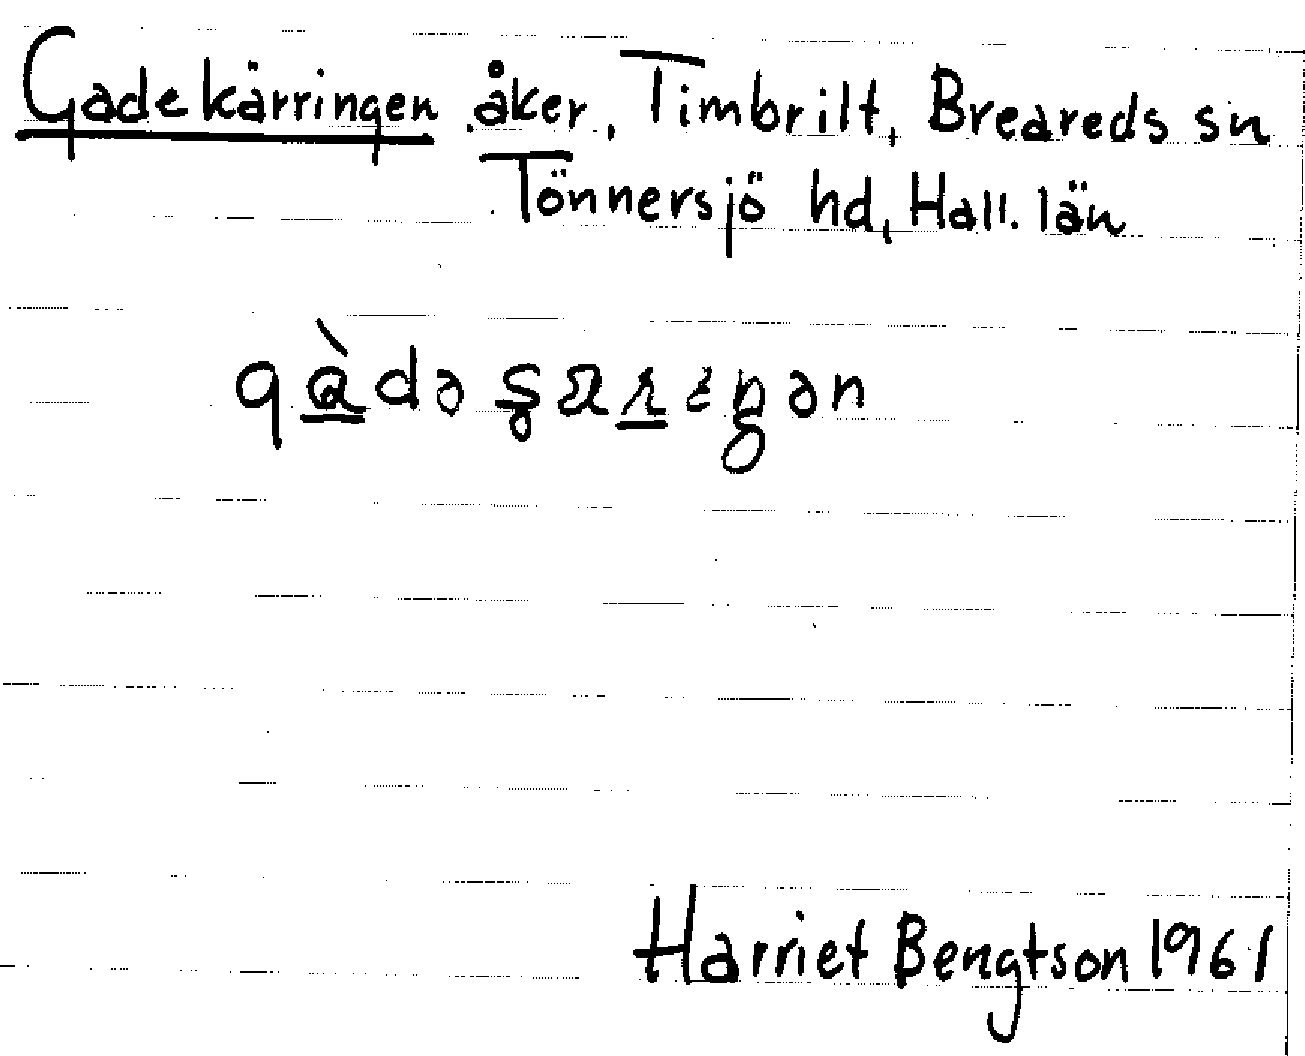 Gadekärringen åker, Timbrilt, Breareds sn
Tönnersjö hd, Hall. län
Harriet Bengtson 1961